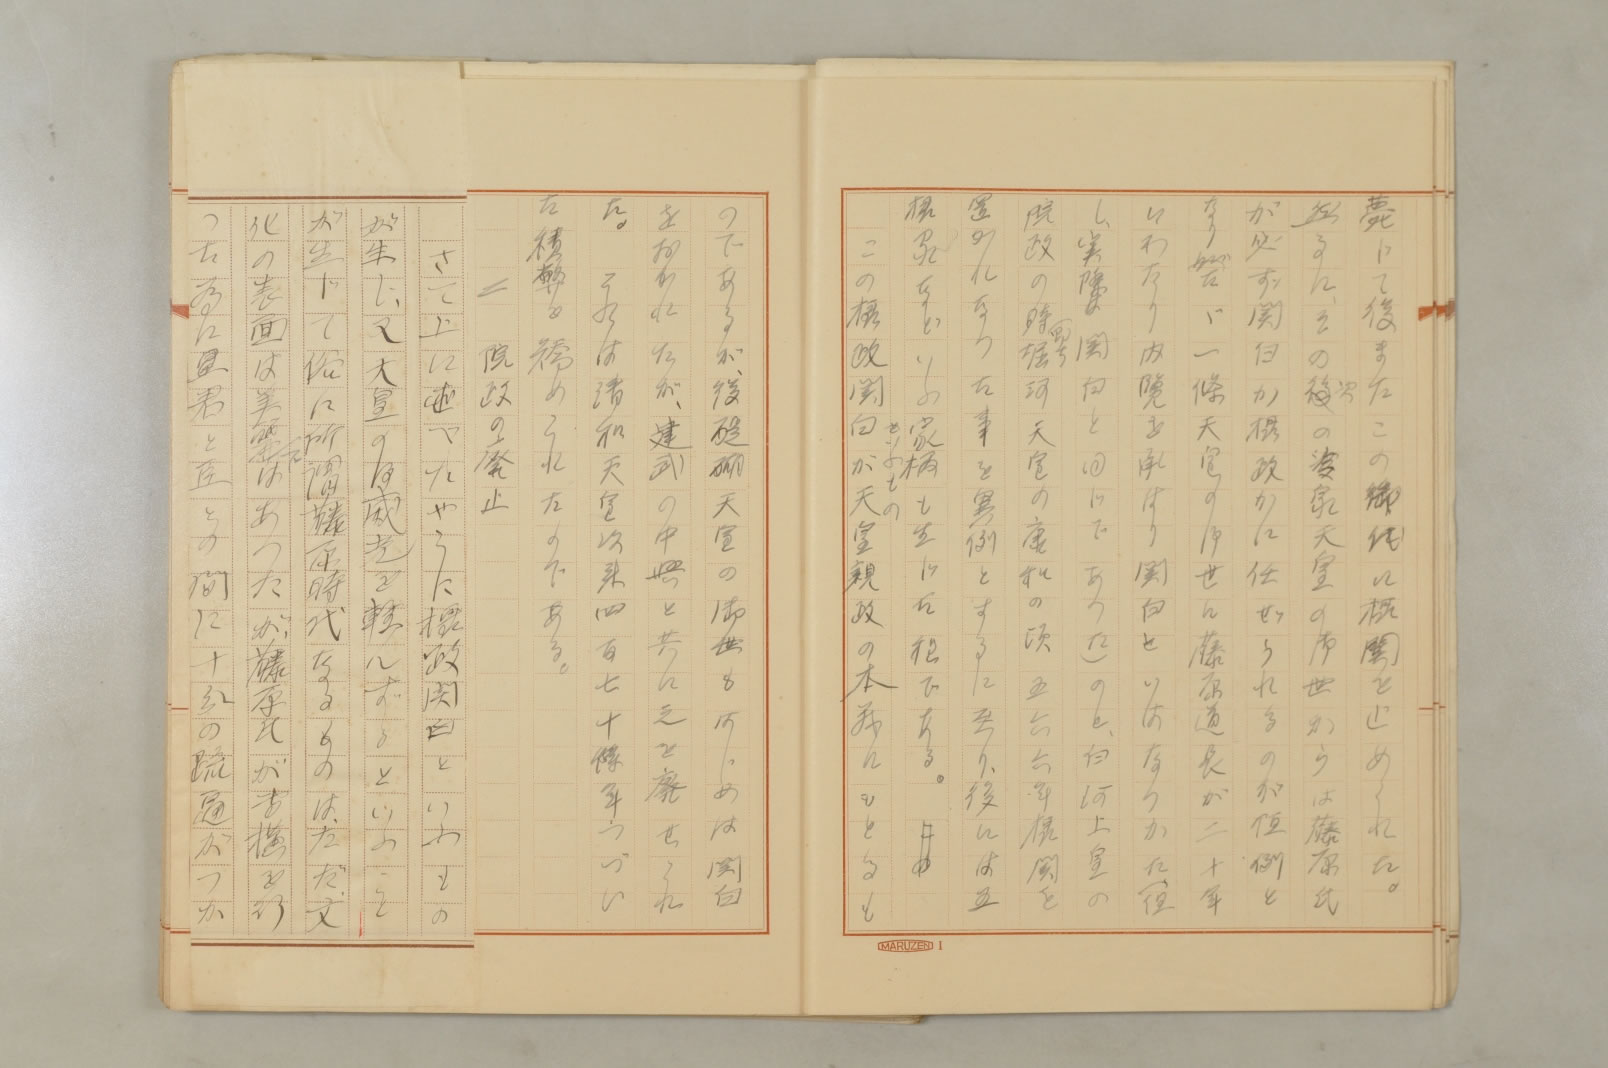 薨じて後またこの御代に摂関を止められた。
然るに、その後の次の冷泉天皇の御世からは藤原氏
が必ず関白か摂政かに任ぜられるのが恒例と
なり、一條天皇の御世に藤原道長が二十年
にわたり内覧を承はり関白とはならなかた(但
し、実際関白と同じであつた)のと、白河上皇の
院政の時堀河天皇の康和の頃五六六年摂関を
置かれなかつた事を異例とするに至り、後には五
摂家などいふ家柄も生じた程である。
この摂政関白がといふもの天皇親政の本義にもとるも
MARUZEN I
のであるが、後醍醐天皇の御世もはじめは関白
をおかれたが、建武の中興と共に之を廃せられ
た。これは清和天皇以来四百七十餘年つづい
た積弊を矯められたのである。
二 院政の廃止
さて上に述べたやうに摂政関白といふもの
が生じ、又天皇の御威光を軽んずるといふこと
が生じて俗に所謂藤原時代なるものは、ただ、文
化の表面は美であつたが、藤原氏が専横を行
つた為に皇君と臣との間に十分の疏通がつか